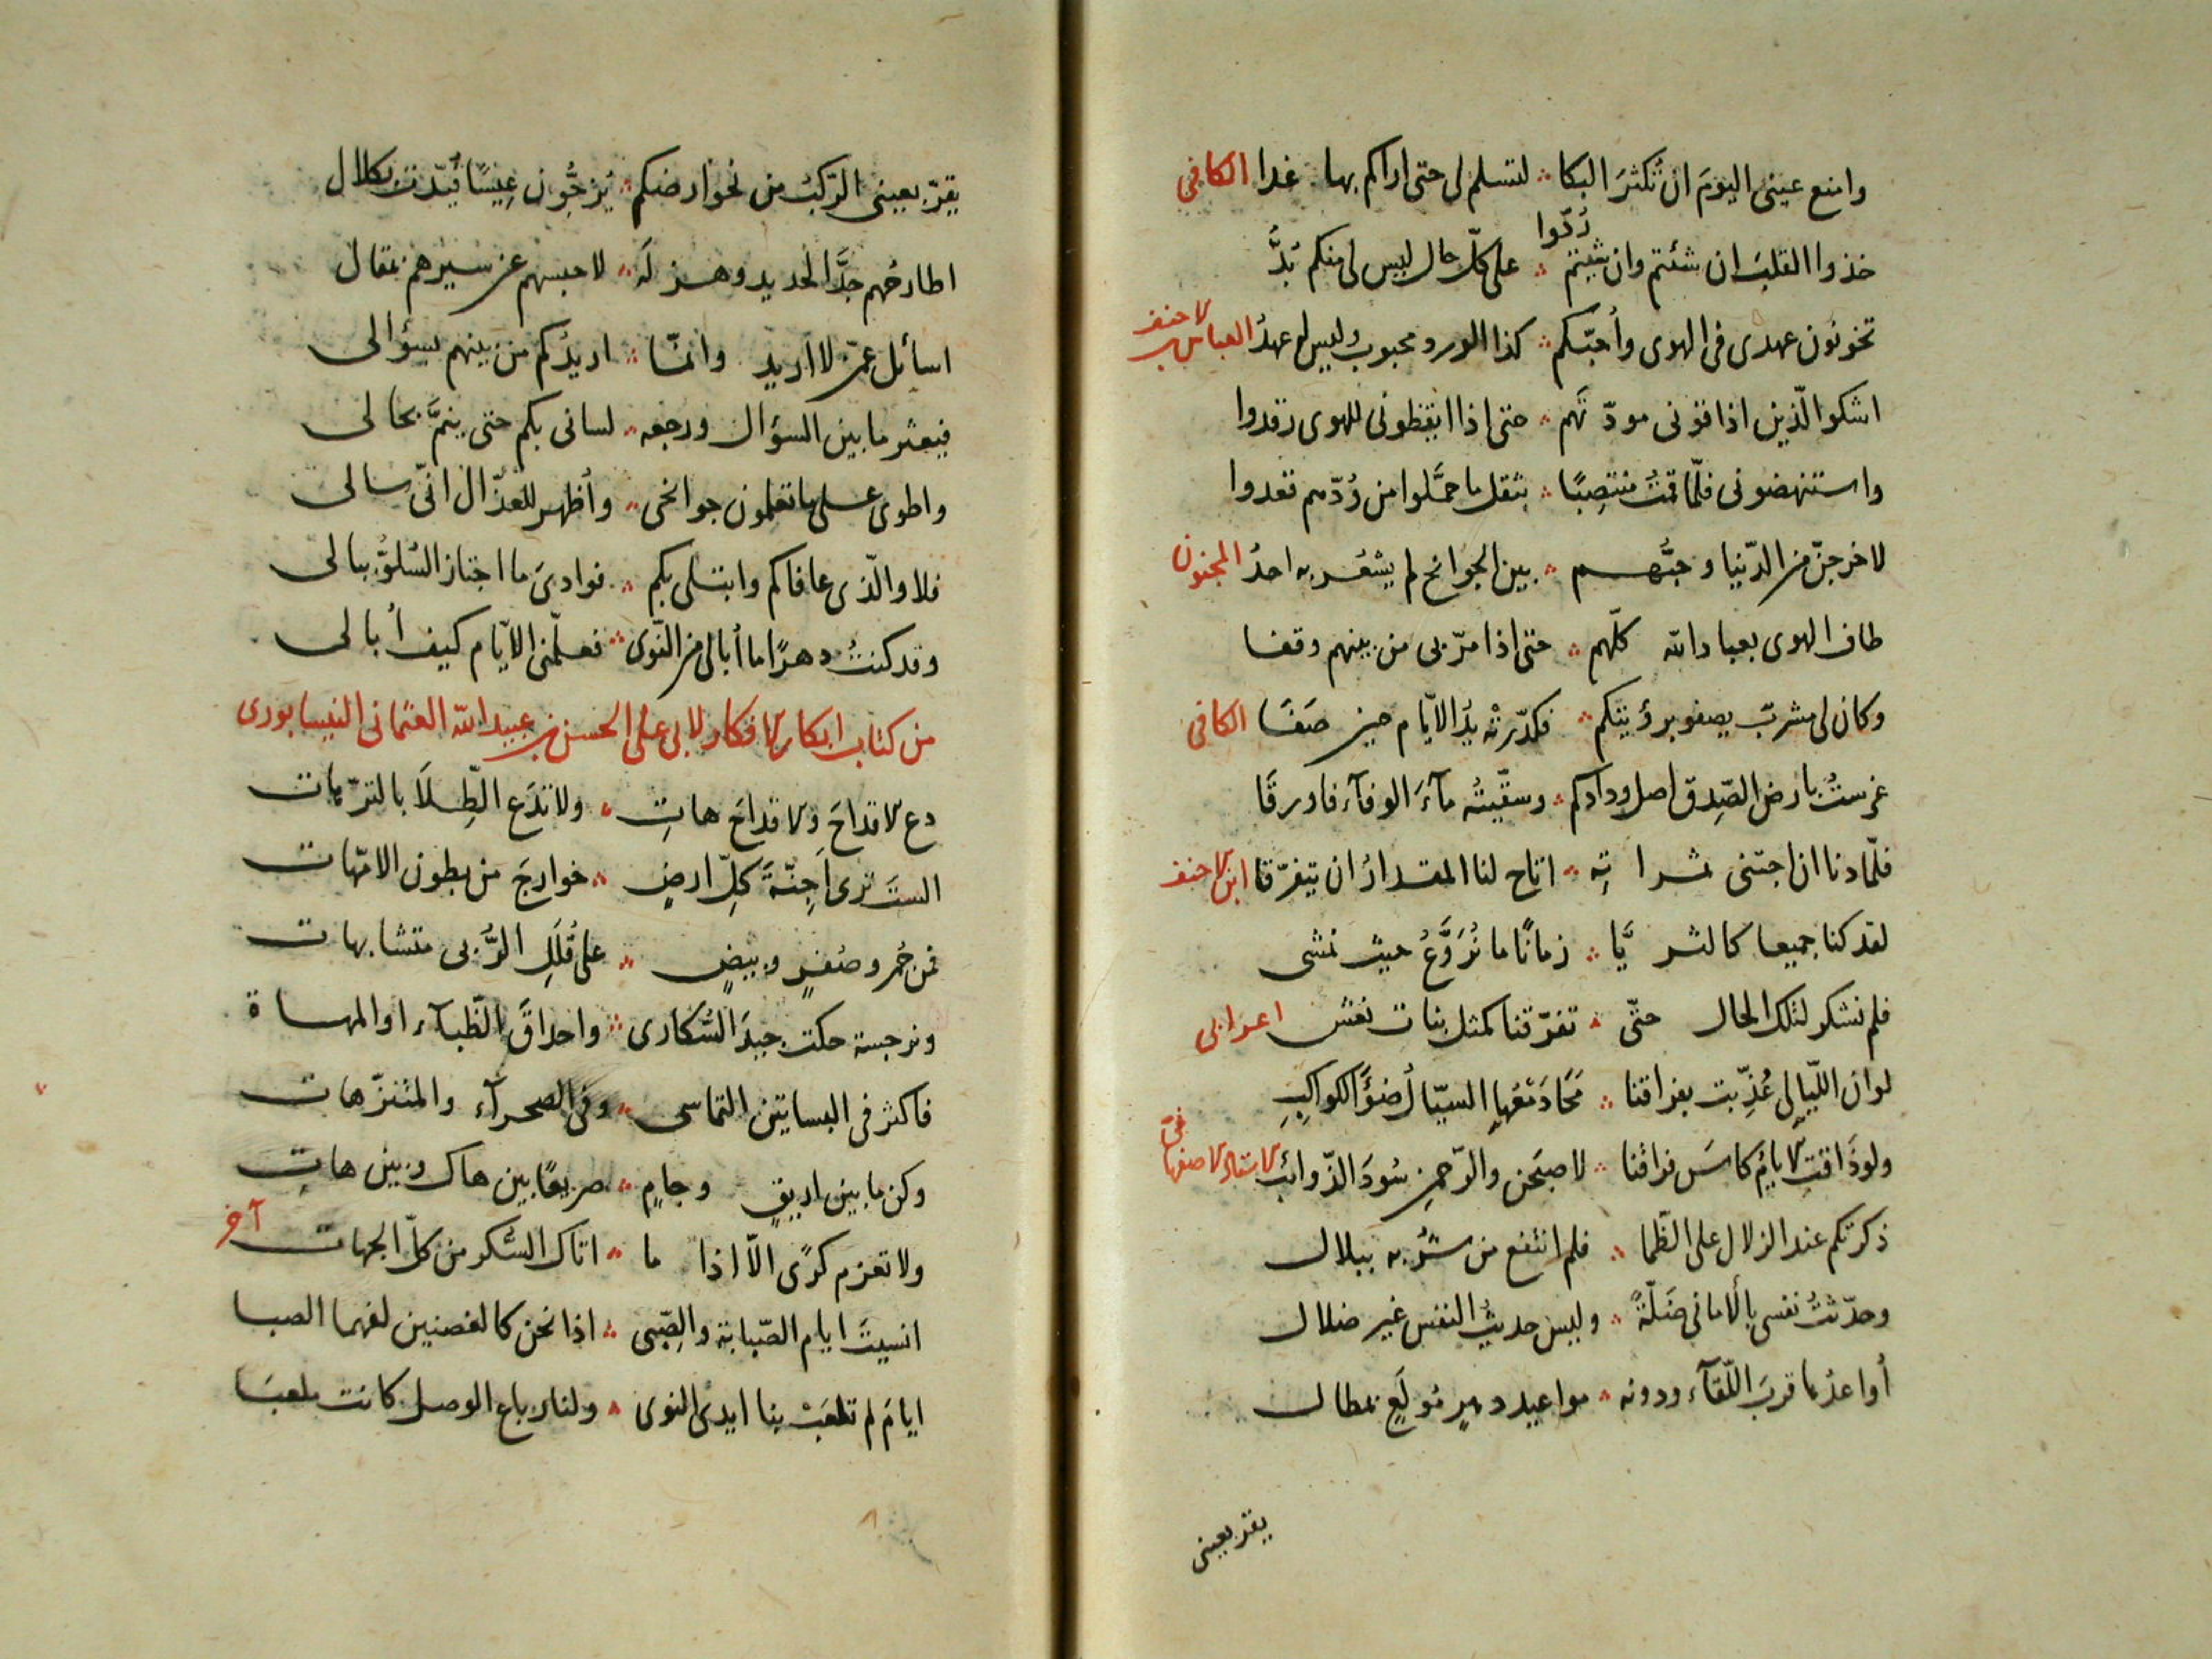 وامنع عيني اليومَ ان تُكثرَ البكا ؞ لتسلم لي حتى اراكم بها غدا الكافي
خذوا القلبَ ان شئتم وان شئتم رُدّوا ؞ على كلّ حال ليس لي منكم بُدُّ
تخونون عهدى فى الهوى وأحبّكم ؞ كذا الورد محبوب وليس له عهدُ العباس بن الاحنف
اشكو الّذين اذاقونى مودّتهم ؞ حتى اذا ايقظونى للهوى رقدوا
واستنهضونى فلمّا قمتُ منتصِبًا ؞ بثقل ما حمَّلوا من وُدّهم قعدوا
لاخرجنّ من الدّنيا وحبُّهم ؞ بين الجوانح لم يشعُر به احدُ المجنون
طاف الهوى بعباد الله كلّهم ؞ حتى اذا مرّ بى من بينهم وقفا
وكان لى مشربٌ يصفو برؤيتكم ؞ فكدّرتْه يدُ الايّام حين صَفَا الكافى
غرستُ بارض الصِّدق اصل ودادكم ؞ وسقّيتُه مآءَ الوفآء فاورقَا
فلمّا دنا ان اجتنى ثمراته ؞ اتاح لنا المقدارُ ان يتفرّقا ابن الاحنف
لقد كنا جميعا كالثريَّا ؞ زمانًا ما نُرَوَّعُ حيث نمشى
فلم نشكر لتلك الحال حتّى ؞ تفرّقنا كمثل بنات نعش اعرابى
لو ان اللّيالى عُذِّبت بفراقنا ؞ مَحَا دَمْعُها السيّال ضوْءَ الكواكبِ
ولو ذَاقت الايامُ كاسَ فراقنا ؞ لاصبحن والرّحمنِ سُودَ الذّوائب الاستاد الاصفهانى
ذكرتكم عند الزلال على الظّما ؞ فلم انتفع من شُربه ببلال
وحدّثتُ نفسى بالامانى ضَلّةً ؞ وليس حديثُ النفس غير ضلال
أُواعدُها قربَ اللّقآء ودونه ؞ مواعيد دهرٍ مُولَعٍ بمطال
يقر بعينى
يقرّ بعينى الرّكبُ من نحو ارضكم ؞ يُزجُّون عِيسًا قُيّدت بكلال
اطارحُهم جدَّ الحديد وهزلَه ؞ لاحبسهم عن سيرهم بمقال
اسائل عمّن لا اريد وانمّا ؞ اريدُكم من بينهم بسؤالى
فيعثر ما بين السؤال ورجعه ؞ لسانى بكم حتى ينمَّ بحالى
واطوى على ما تعلمون جوانحى ؞ وأظهر للعذّال انّى سالى
فلا والّذى عافاكم وابتلى بكم ؞ فوادىَ ما اجتاز السُلوُّ ببالى
وقد كنتُ دهرًا ما أبالى من النّوى ؞ فعلّمنى الايّام كيف أبالى
من كتاب ابكار الافكار لابى على الحسن بن عبيد الله العثمانى النيسابورى
دع الاقداحَ والاقداحَ هاتِ ؞ ولا تدَع الطِّلَا بالترّهات
الستَ ترى أَجِنّةَ كلِّ ارضٍ ؞ خوارجَ من بطون الامّهات
فمن حُمر وصُفرٍ وبيضٍ ؞ على قُلَلِ الرُّبى متشابهات
ونرجسة حكت جيدَ السُّكارى ؞ واحداقَ الظّبآء او المهاة
فاكثر فى البساتين التماسى ؞ وفى الصحرآء والمتنزّهات
وكن ما بين ابريقٍ وجامٍ ؞ صريعًا بين هاك وبين هاتِ
ولا تعزم كرًى الّا اذا ما ؞ اتاك السُّكر من كلّ الجهات آخر
انسيتَ ايام الصّبابة والصِّبى ؞ اذ نحن كالغصنين لفهما الصبا
ايامَ لم تلعَبْ بنا ايدى النوى ؞ ولنا رباع الوصل كانت ملعبَا